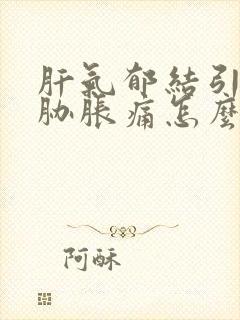 肝氣郁結引
胁脹痛怎麼
阿酥